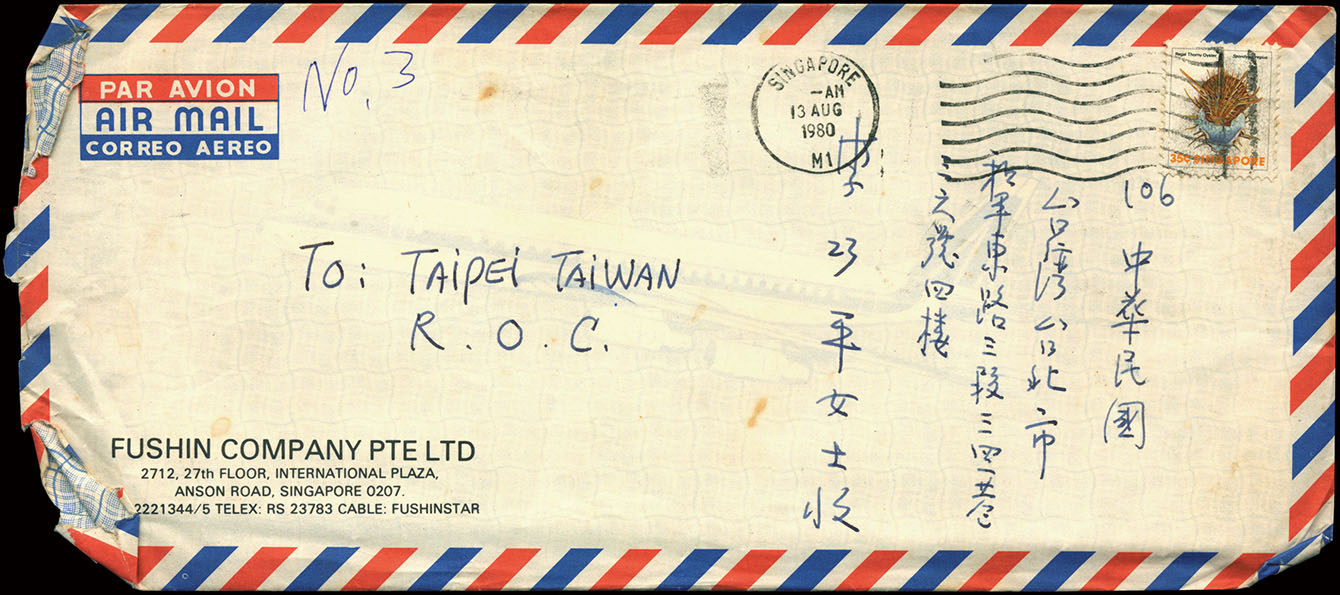 PAR AVION
AIR MAIL
CORREO AEREO
No. 3
SINGAPORE
-AM
13 AUG
1980
M1
Regal Thorny Oyster
35c SINGAPORE
106 中華民國
台湾台北市
和平東路三段三四巷
六號四楼
李 平女士收
TO: TAIPEI TAIWAN
R. O. C.
FUSHIN COMPANY PTE LTD
2712, 27th FLOOR, INTERNATIONAL PLAZA,
ANSON ROAD, SINGAPORE 0207.
2221344/5 TELEX: RS 23783 CABLE: FUSHINSTAR